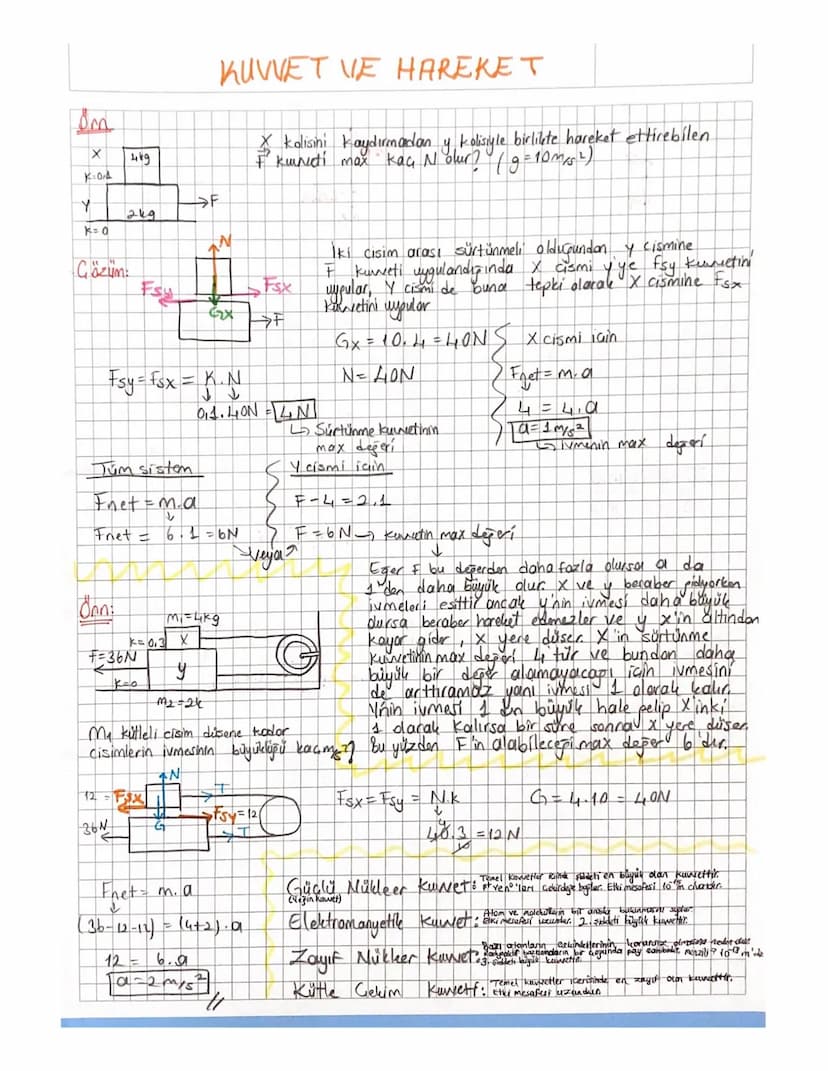 KUVVET VE HAREKET
Örn
X
4kg
K=0.1
Y
2kg
F
K=0
X kolisini kaydırmadan y kolisiyle birlikte hareket ettirebilen
F kuvveti max kaç N olur? (g=10m/s²)
Çözüm:
N
Fsy
Fsx
Gx
F
İki cisim arası sürtünmeli olduğundan y cismine
F kuvveti uygulandığında X cismi y'ye Fsy kuvvetini
uygular, Y cismi de buna tepki olarak X cismine Fsx
kuvvetini uygular
Gx = 10.4 = 40N
N = 40N
Fsy = Fsx = K.N
0,1.40N = 4N
↳ Sürtünme kuvvetinin
max değeri
X cismi için
Fnet = m.a
4 = 4.a
a = 1m/s²
↳ ivmenin max değeri
Tüm sistem
Fnet = m.a
Fnet = 6.1 = 6N
veya
Y cismi için
F-4 = 2.1
F = 6N → kuvvetin max değeri
Eğer F bu değerden daha fazla olursa a da
1'den daha büyük olur. X ve y beraber gidiyorken
ivmeleri eşittir ancak y'nin ivmesi daha büyük
olursa beraber hareket edemezler ve y x'in altından
kayar gider, X yere düşer. X'in sürtünme
kuvvetinin max değeri 4'tür ve bundan daha
büyük bir değer alamayacağı için ivmesini
de arttıramaz yani ivmesi 1 olarak kalır.
Y'nin ivmesi 1 den büyük hale gelip X'inki
1 olarak kalırsa bir süre sonra x yere düşer.
Bu yüzden F'in alabileceği max değer 6'dır.
Örn:
m₁=4kg
K=0.3
X
F=36N
y
K=0
m₂=2k
M₁ kütleli cisim düşene kadar
cisimlerin ivmesinin büyüklüğü kaç m/s²?
N
12 = Fsx
T
G
Fsy = 12
36N
T
Fsx = Fsy = N.k
40.3 = 12N
10
G = 4.10 = 40N
Fnet = m.a
(36-12-12) = (4+2).a
12 = 6.a
a = 2m/s²
Güçlü Nükleer Kuvvet: Temel kuvvetler şiddeti en büyük olan kuvvettir.
Elektromanyetik Kuvvet: Atom ve moleküllerin bir arada bulunmasını sağlar.
Etki mesafesi uzundur. 2. şiddeti büyük kuvvettir.
Zayıf Nükleer Kuvvet: Bazı atomların çekirdeklerinin kararsız olmasına neden olur.
Kütle Çekim Kuvveti: Temel kuvvetler içerisinde en zayıf olan kuvvettir.
Etki mesafesi uzundur